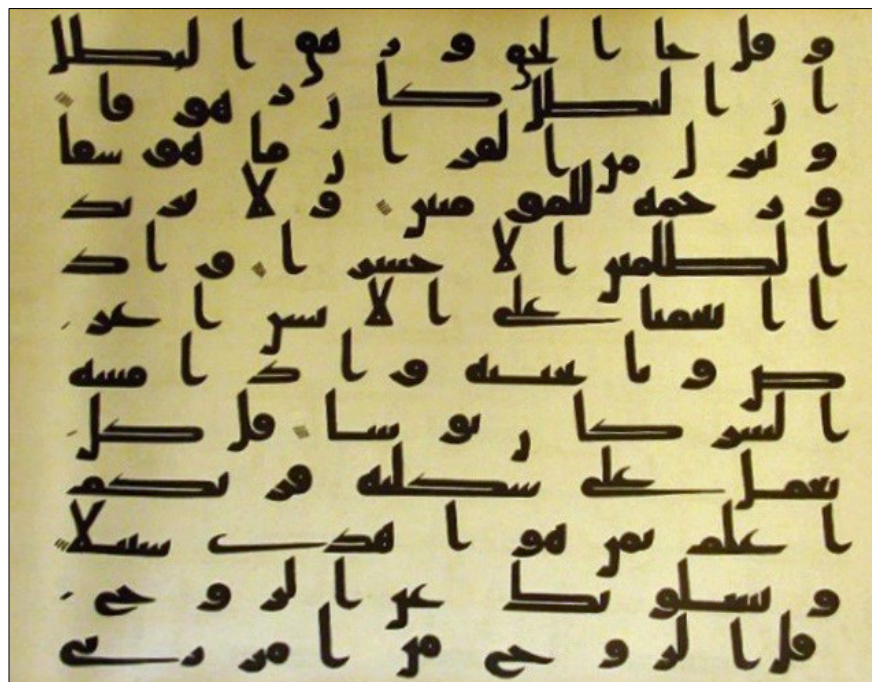 وقل جا الحق وزهق البطل
ان البطل كان زهوقا
وننزل من القران ما هو شفا
ورحمة للمومنين ولا يزيد
الظلمين الا خسرا واذ
ا انعمنا على الانسن اعر
ض ونا بجنبه واذا مسه
الشر كان يوسا قل كل
يعمل على شكلته فربكم
اعلم بمن هو اهدى سبيلا
ويسلونك عن الروح
قل الروح من امر ربى